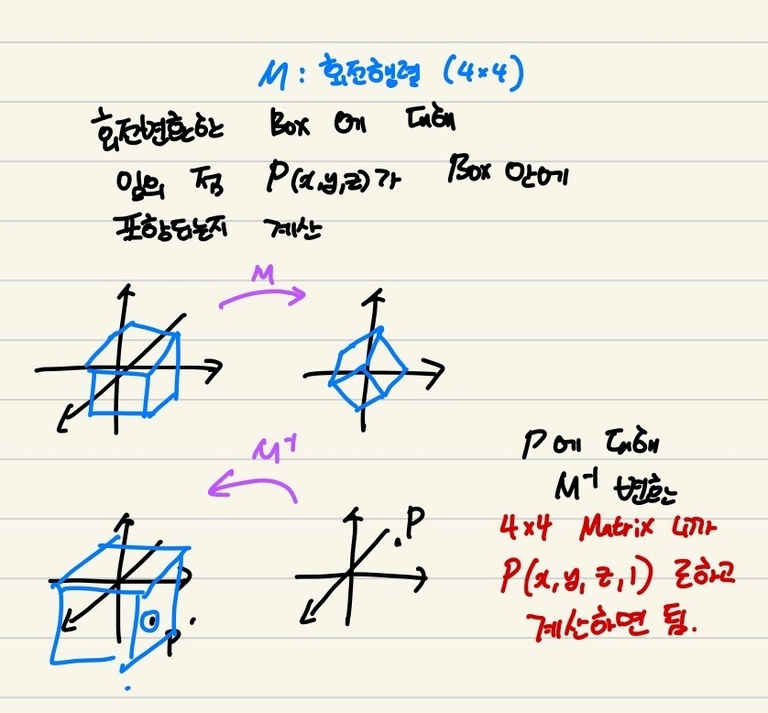 M : 회전행렬 (4×4)
회전변환한 Box 에 대해
임의 점 P(x,y,z)가 Box 안에
포함되는지 계산
M
M⁻¹
P에 대해
M⁻¹ 변환
P
4×4 Matrix 니까
P(x, y, z, 1) 로하고
계산하면 됨.
P